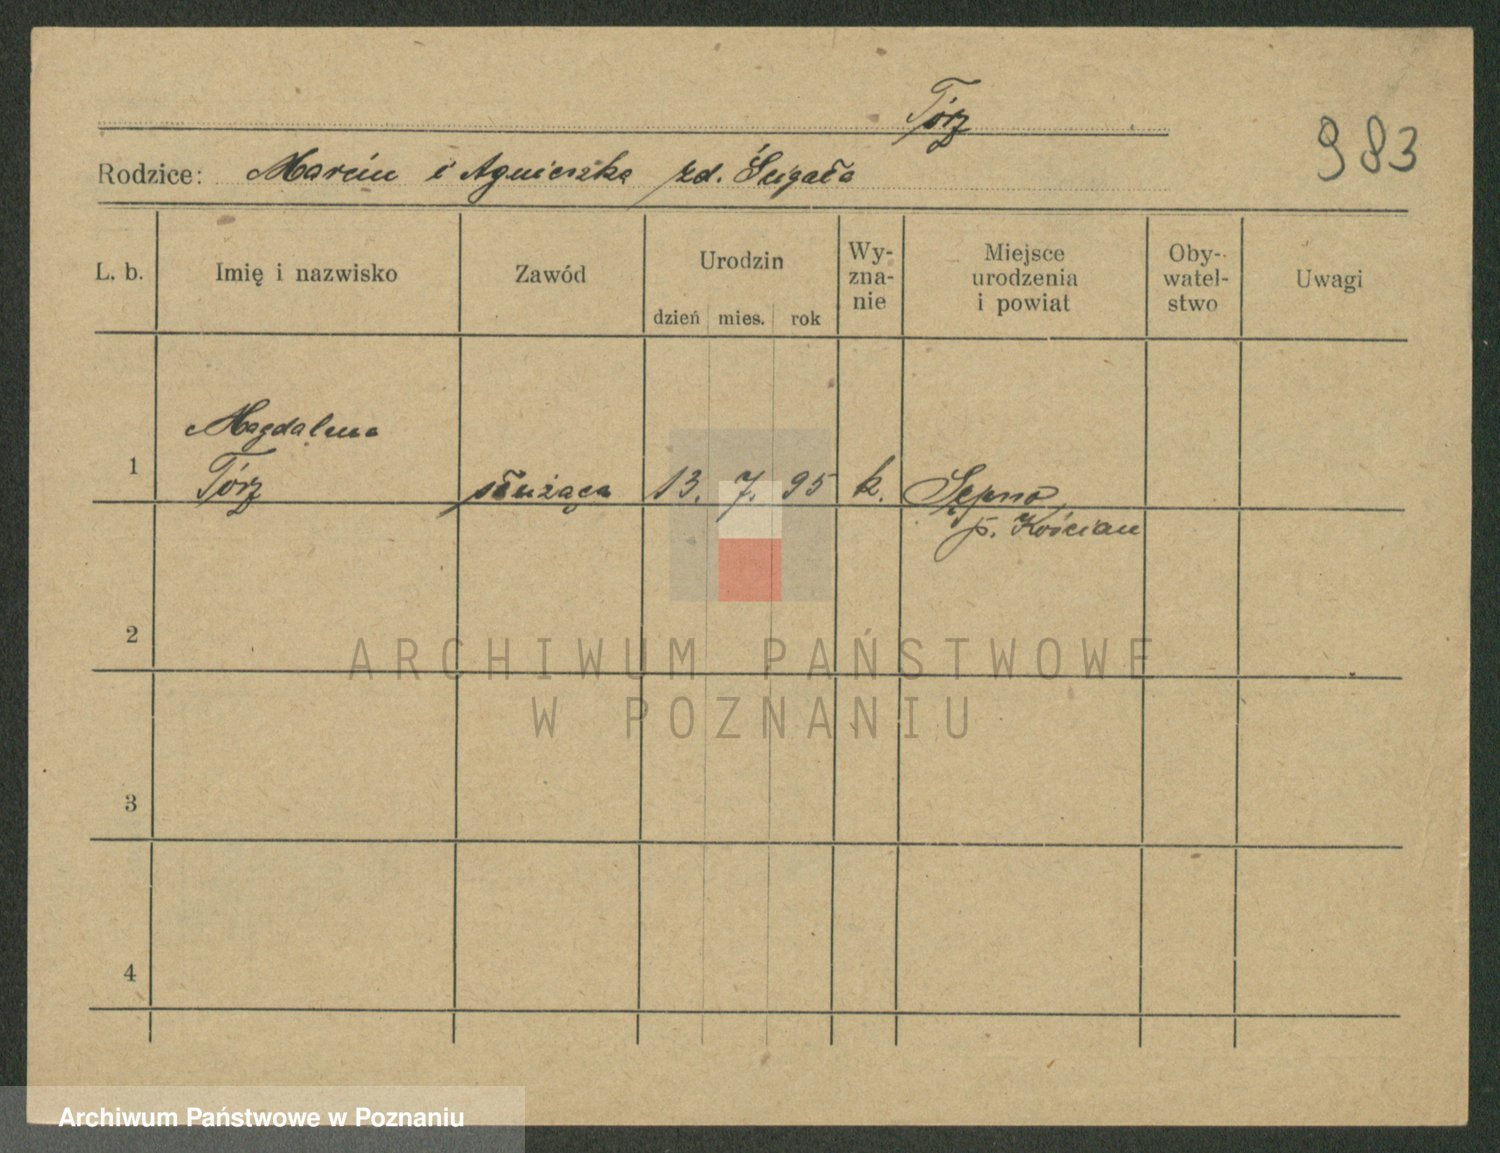 Tórz
983
Rodzice: Marcin i Agnieszka zd. Szgała
L. b. Imię i nazwisko Zawód Urodzin dzień mies. rok Wy-zna-nie Miejsce urodzenia i powiat Oby-watel-stwo Uwagi
Magdalena
1 Tórz służąca 13. 7. 95 k. Sępno
p. Kościan
2
ARCHIWUM PAŃSTWOWE
W POZNANIU
3
4
Archiwum Państwowe w Poznaniu